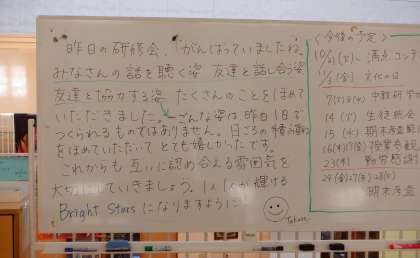 昨日の研修会、「がんばっていましたね。
みなさんの話を聴く姿 友達と話し合う姿
友達と協力する姿 たくさんのことをほめて
いただきました。こんな姿は昨日1日で
つくられるものではありません。日ごろの積み重ね
をほめていただいて とても嬉しかったです。
これからも 互いに認め合える雰囲気を
大切にしていきましょう。1人1人が輝ける
Bright Starsになりますように
<今後の予定>
10/31(火)、満点コンテ
11/3(金) 文化の日
14(火) 生徒総会
15(水) 期末考査
16(木)17(金)授業参観
23(木) 勤労感謝
29(金)27(月)28(火)
期末考査